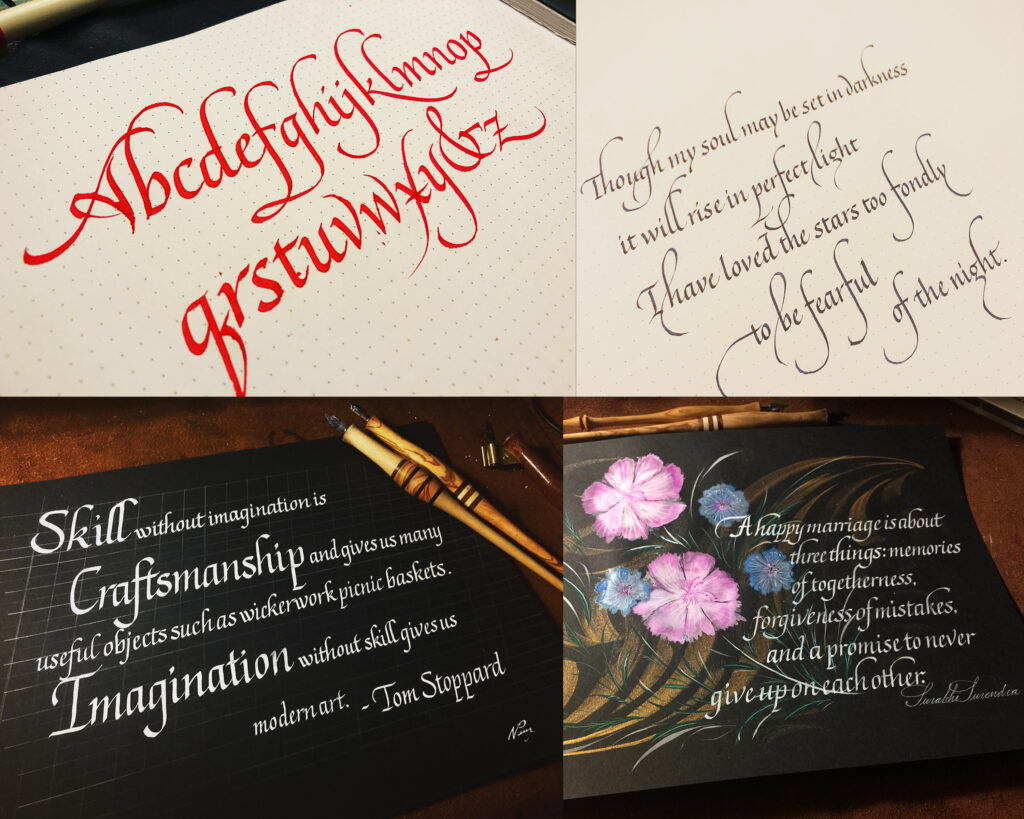 Abcdefghijklmnop
qrstuvwxy&z
Though my soul may be set in darkness
it will rise in perfect light
I have loved the stars too fondly
to be fearful of the night.
Skill without imagination is
Craftsmanship and gives us many
useful objects such as wickerwork picnic baskets.
Imagination without skill gives us
modern art. - Tom Stoppard
A happy marriage is about
three things: memories
of togetherness,
forgiveness of mistakes,
and a promise to never
give up on each other.
Surabhi Surendra